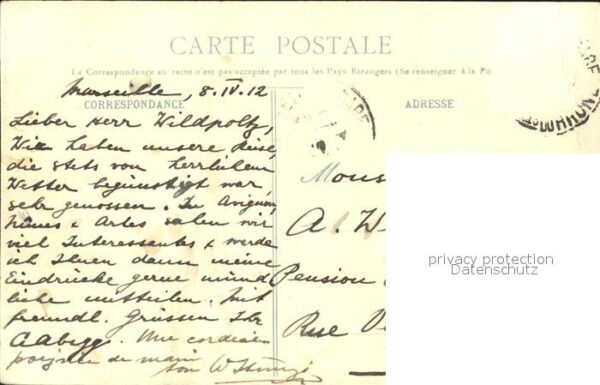 CARTE POSTALE
La Correspondance au recto n'est pas acceptée par tous les Pays Etrangers (Se renseigner à la Po
Marseille, 8.IV.12
CORRESPONDANCE
Lieber Herr Wildpolz,
Wir haben unsere Reise,
die stets von herrlichem
Wetter begünstigt war,
sehr genossen. In Avignon,
Nîmes & Arles sahen wir
viel Interessantes & werde
ich Ihnen dann meine
Eindrücke gerne münd
lich mitteilen. Mit
freundl. Grüssen Ihr
CAbegg. Une cordiale
poignée de main
von W
ADRESSE
Mons
A. W
Pension
Rue V
privacy protection
Datenschutz